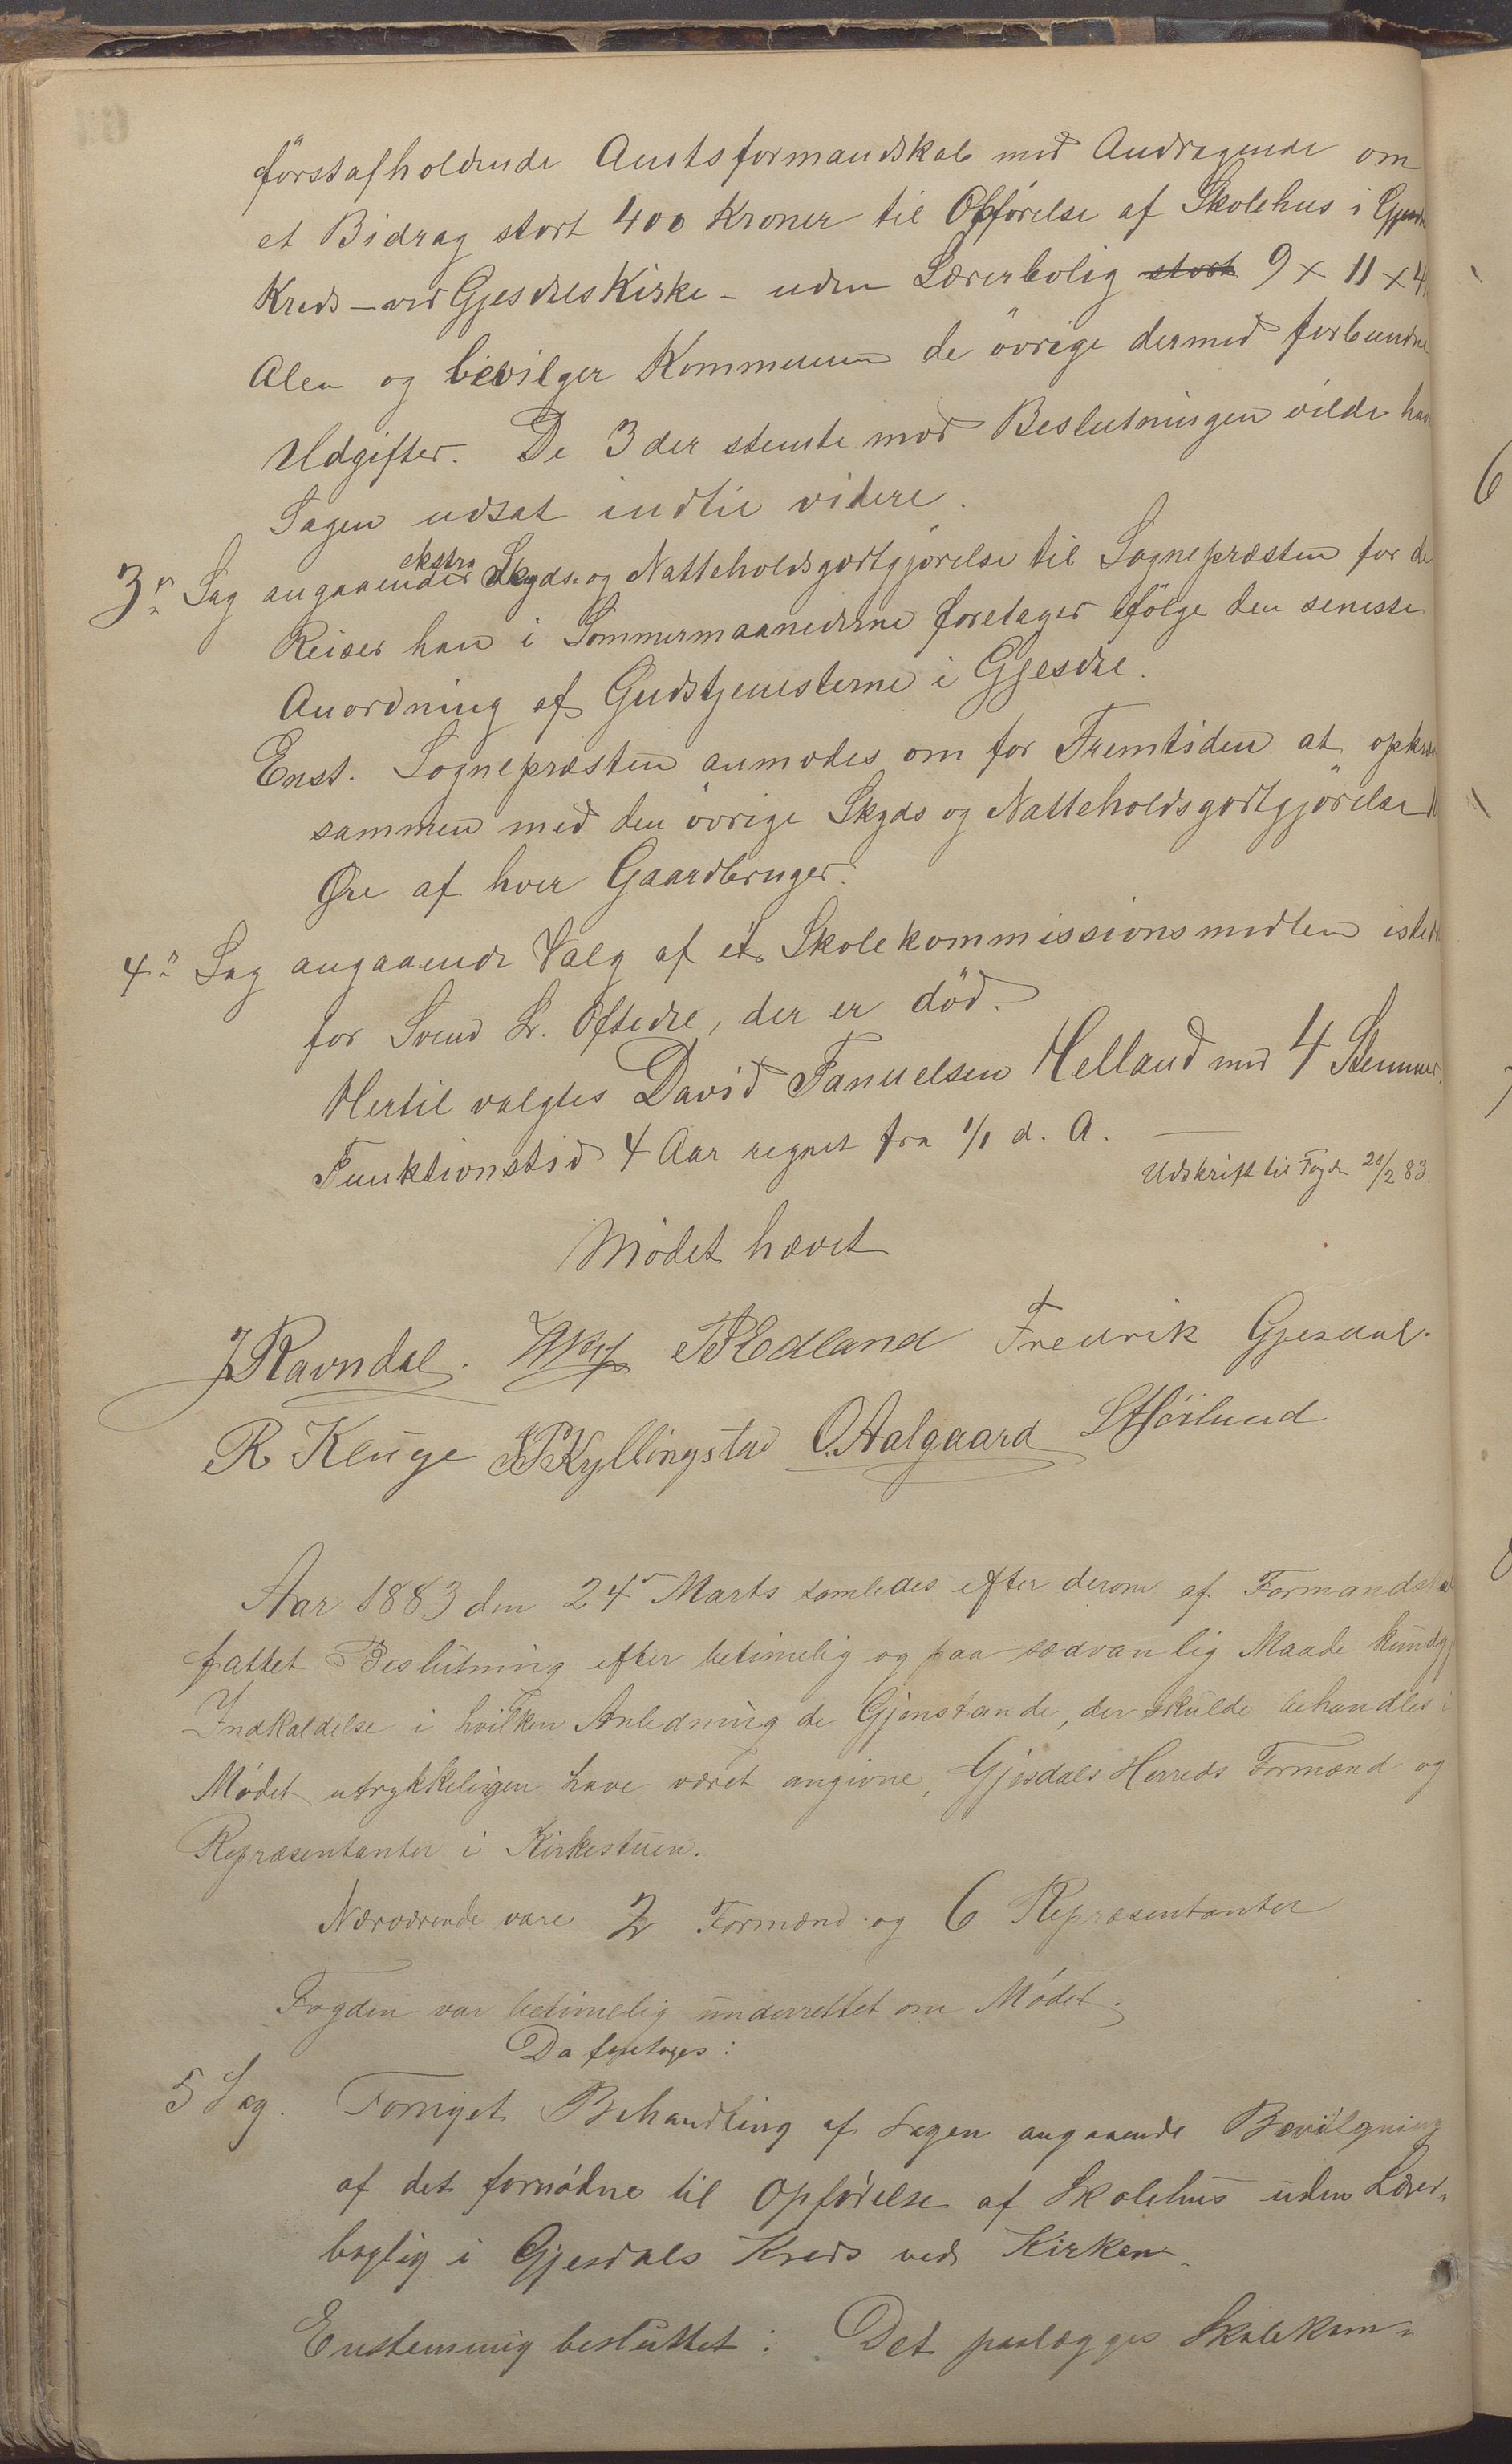 förstafholdende Amtsformandskab med Andragende om
et Bidrag stort 400 Kroner til Opförelse af Skolehus i
Kreds - ved Gjesdals Kirke - uden Lærerbolig stort 9 x 11 x 4
Alen og bevilger Kommunen de övrige dermed forbundne
Udgifter. De 3 der stemte mod Beslutningen vilde have
Sagen udsat indtil videre.
3n Sag angaaende ekstra Skyds- og Natteholdsgodtgjörelse til Sognepræsten for de
Reiser han i Sommermaanederne foretager ifölge den seneste
Anordning af Gudstjenesterne i Gjesdal.
Enst. Sognepræsten anmodes om for Fremtiden at
sammen med den övrige Skyds og Natteholdsgodtgjörelse
Øre af hver Gaardbruger.
4n Sag angaaende Valg af et Skolekommissionsmedlem
for Svend L. Oftedal, der er död.
Hertil valgtes David Fanuelsen Helland med 4 Stemmer.
Funktionstid 4 Aar regnet fra 1/1 d. A.
Udskrift til Fogden 20/2 83.
Mödet hævet
J Ravndal. Fredrik Gjesdal.
Edland
R Kluge Kyllingstad O. Aalgaard
Aar 1883 den 24n Marts samledes efter derom af
fattet Beslutning efter betimelig og paa sædvanlig Maade
Indkaldelse i hvilken Anledning de Gjenstande, der skulde behandles i
Mødet utrykkeligen have været angivne, Gjesdals Herreds Formænd og
Repræsentanter i Kirkestuen.
Nærværende vare 2 Formænd og 6 Repræsentanter
Fogden var betimelig underrettet om Mødet.
Da foretages:
5 Sag. Fornyet Behandling af Sagen angaaende Bevilgning
af det fornødne til Opførelse af Skolehus uden Lærer-
boglig i Gjesdals Kreds ved Kirken.
Enstemmig besluttet: Det paalægges Skolekom-